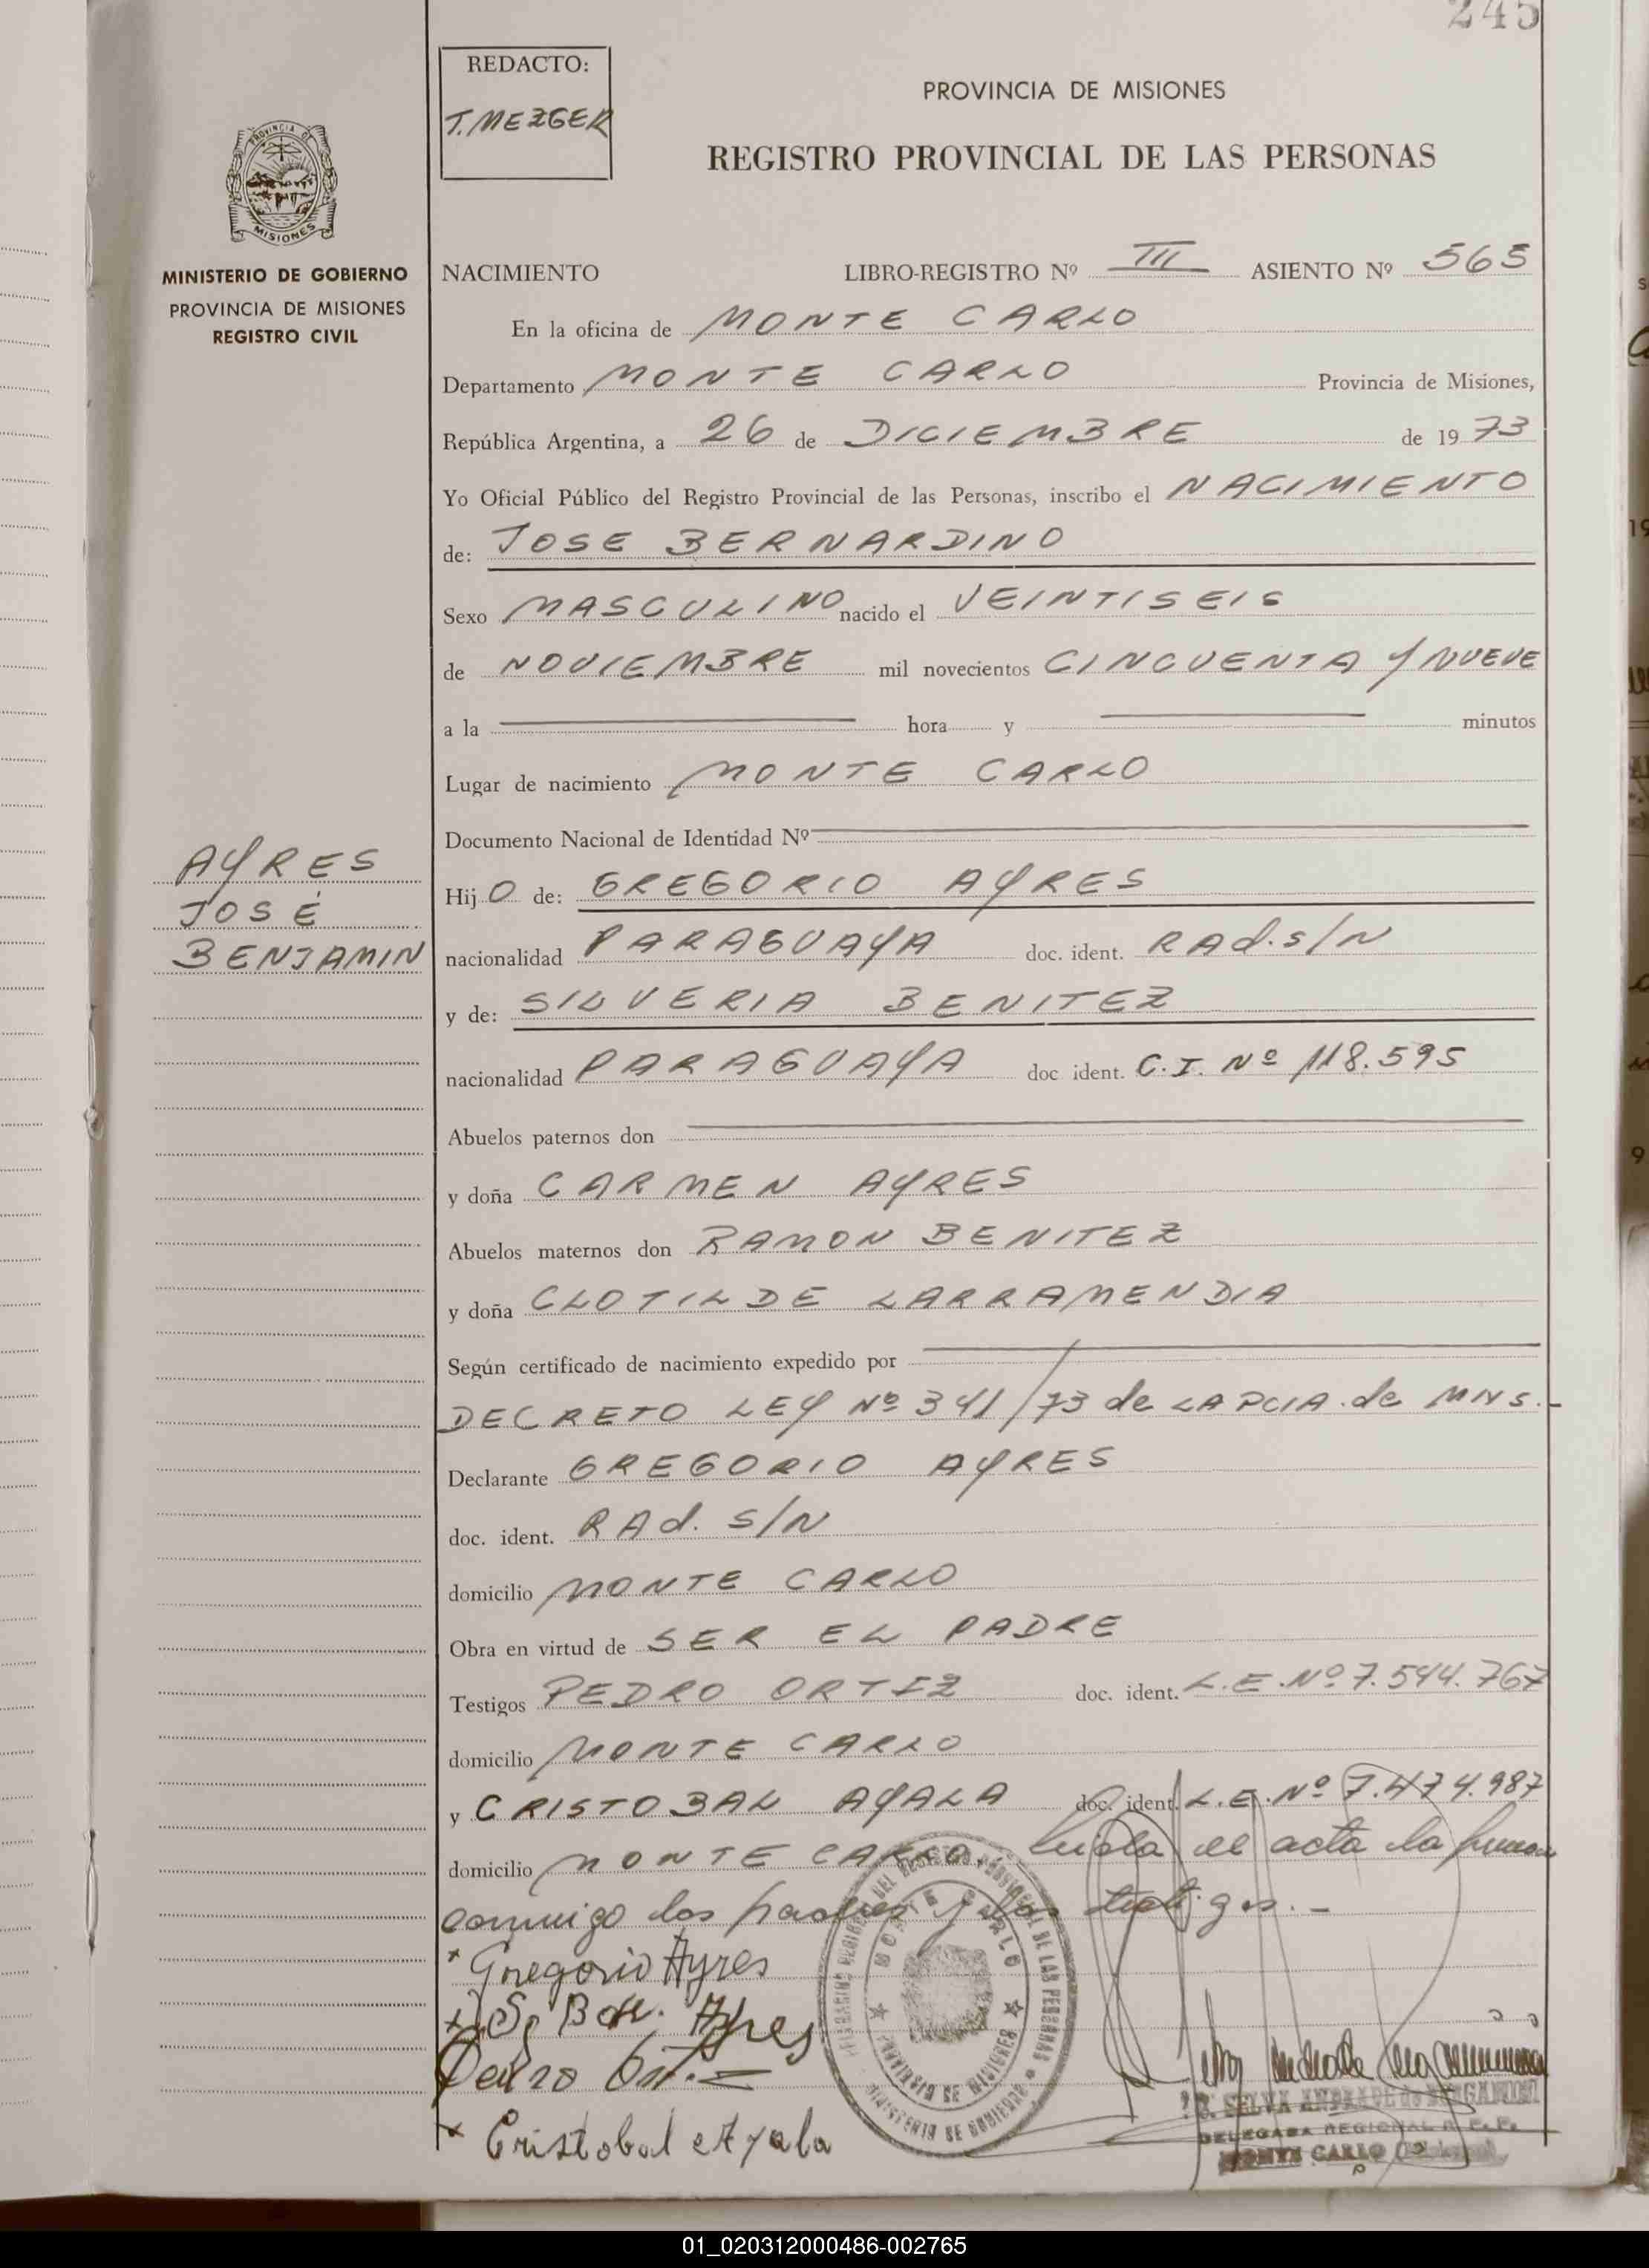 245
REDACTO:
T. MEZGER
PROVINCIA DE MISIONES
REGISTRO PROVINCIAL DE LAS PERSONAS
PROVINCIA DE
MISIONES
MINISTERIO DE GOBIERNO
PROVINCIA DE MISIONES
REGISTRO CIVIL
NACIMIENTO LIBRO-REGISTRO Nº III ASIENTO Nº 565
En la oficina de MONTE CARLO
Departamento MONTE CARLO Provincia de Misiones,
República Argentina, a 26 de DICIEMBRE de 1973
Yo Oficial Público del Registro Provincial de las Personas, inscribo el NACIMIENTO
de: JOSE BERNARDINO
Sexo MASCULINO nacido el VEINTISEIS
de NOVIEMBRE mil novecientos CINCUENTA Y NUEVE
a la hora y minutos
Lugar de nacimiento MONTE CARLO
Documento Nacional de Identidad Nº
AYRES
JOSÉ
BENJAMIN
Hijo de: GREGORIO AYRES
nacionalidad PARAGUAYA doc. ident. RAd. s/N
y de: SILVERIA BENITEZ
nacionalidad PARAGUAYA doc ident. C.I. Nº 118.595
Abuelos paternos don
y doña CARMEN AYRES
Abuelos maternos don RAMON BENITEZ
y doña CLOTILDE LARRAMENDIA
Según certificado de nacimiento expedido por
DECRETO LEY Nº 341/73 de LA PCIA. de MNS.-
Declarante GREGORIO AYRES
doc. ident. RAd. S/N
domicilio MONTE CARLO
Obra en virtud de SER EL PADRE
Testigos PEDRO ORTIZ doc. ident. L.E. Nº 7.544.767
domicilio MONTE CARLO
y CRISTOBAL AYALA doc. ident. L.E. Nº 7.474.987
domicilio MONTE CARLO. Leida el acta la firman
conmigo los padres y los testigos.-
Gregorio Ayres
Ayres
Pedro Ortiz
Cristobal Ayala
MONTE CARLO
PROVINCIA DE MISIONES
MINISTERIO DE GOBIERNO
DE LAS PERSONAS
SELVA ANDRADE de
DELEGADA REGIONAL R. P. P.
MONTE CARLO
01_020312000486-002765